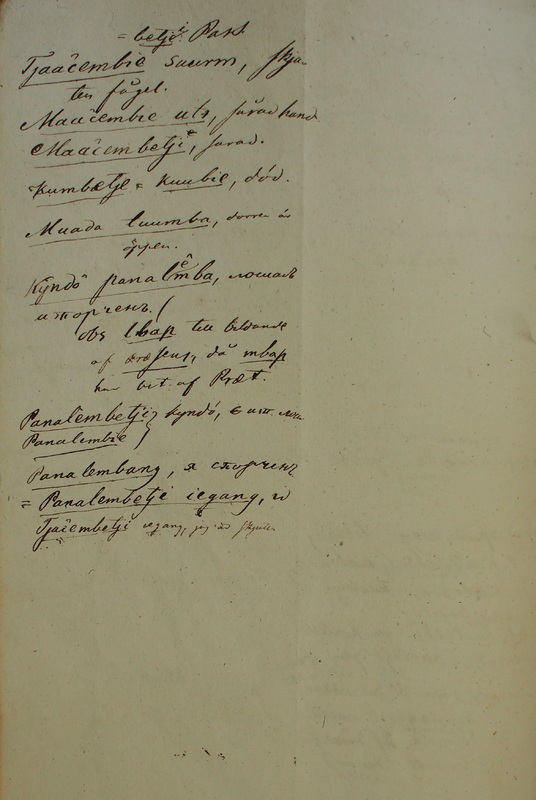 = betji Part
Tjaačembie suurm, skju-
ten fågel.
Maačembie uts, sårad hand
Maačembetji, sårad.
Kumbetje = Kuubie, död.
Muada luumba, dorren är
öppen.
Kyndô panalêmba, лошадь
испорченъ.
obs lbap till bildande
af Præsens, då mbap
har bet. af Præt.
Panalembetji, kyndô,
Panalembie
Panalembang, я спорченъ
= Panalembetji iegang,
Tjačembetji iegang, jag är skjuten